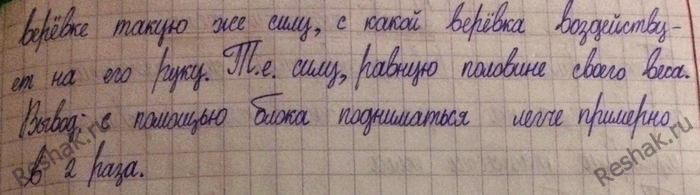 верёвке такую же силу, с какой верёвка воздейству-
ет на его руку. Т.е. силу, равную половине своего веса.
Вывод: с помощью блока подниматься легче примерно
в 2 раза.
Reshak.ru
Reshak.ru